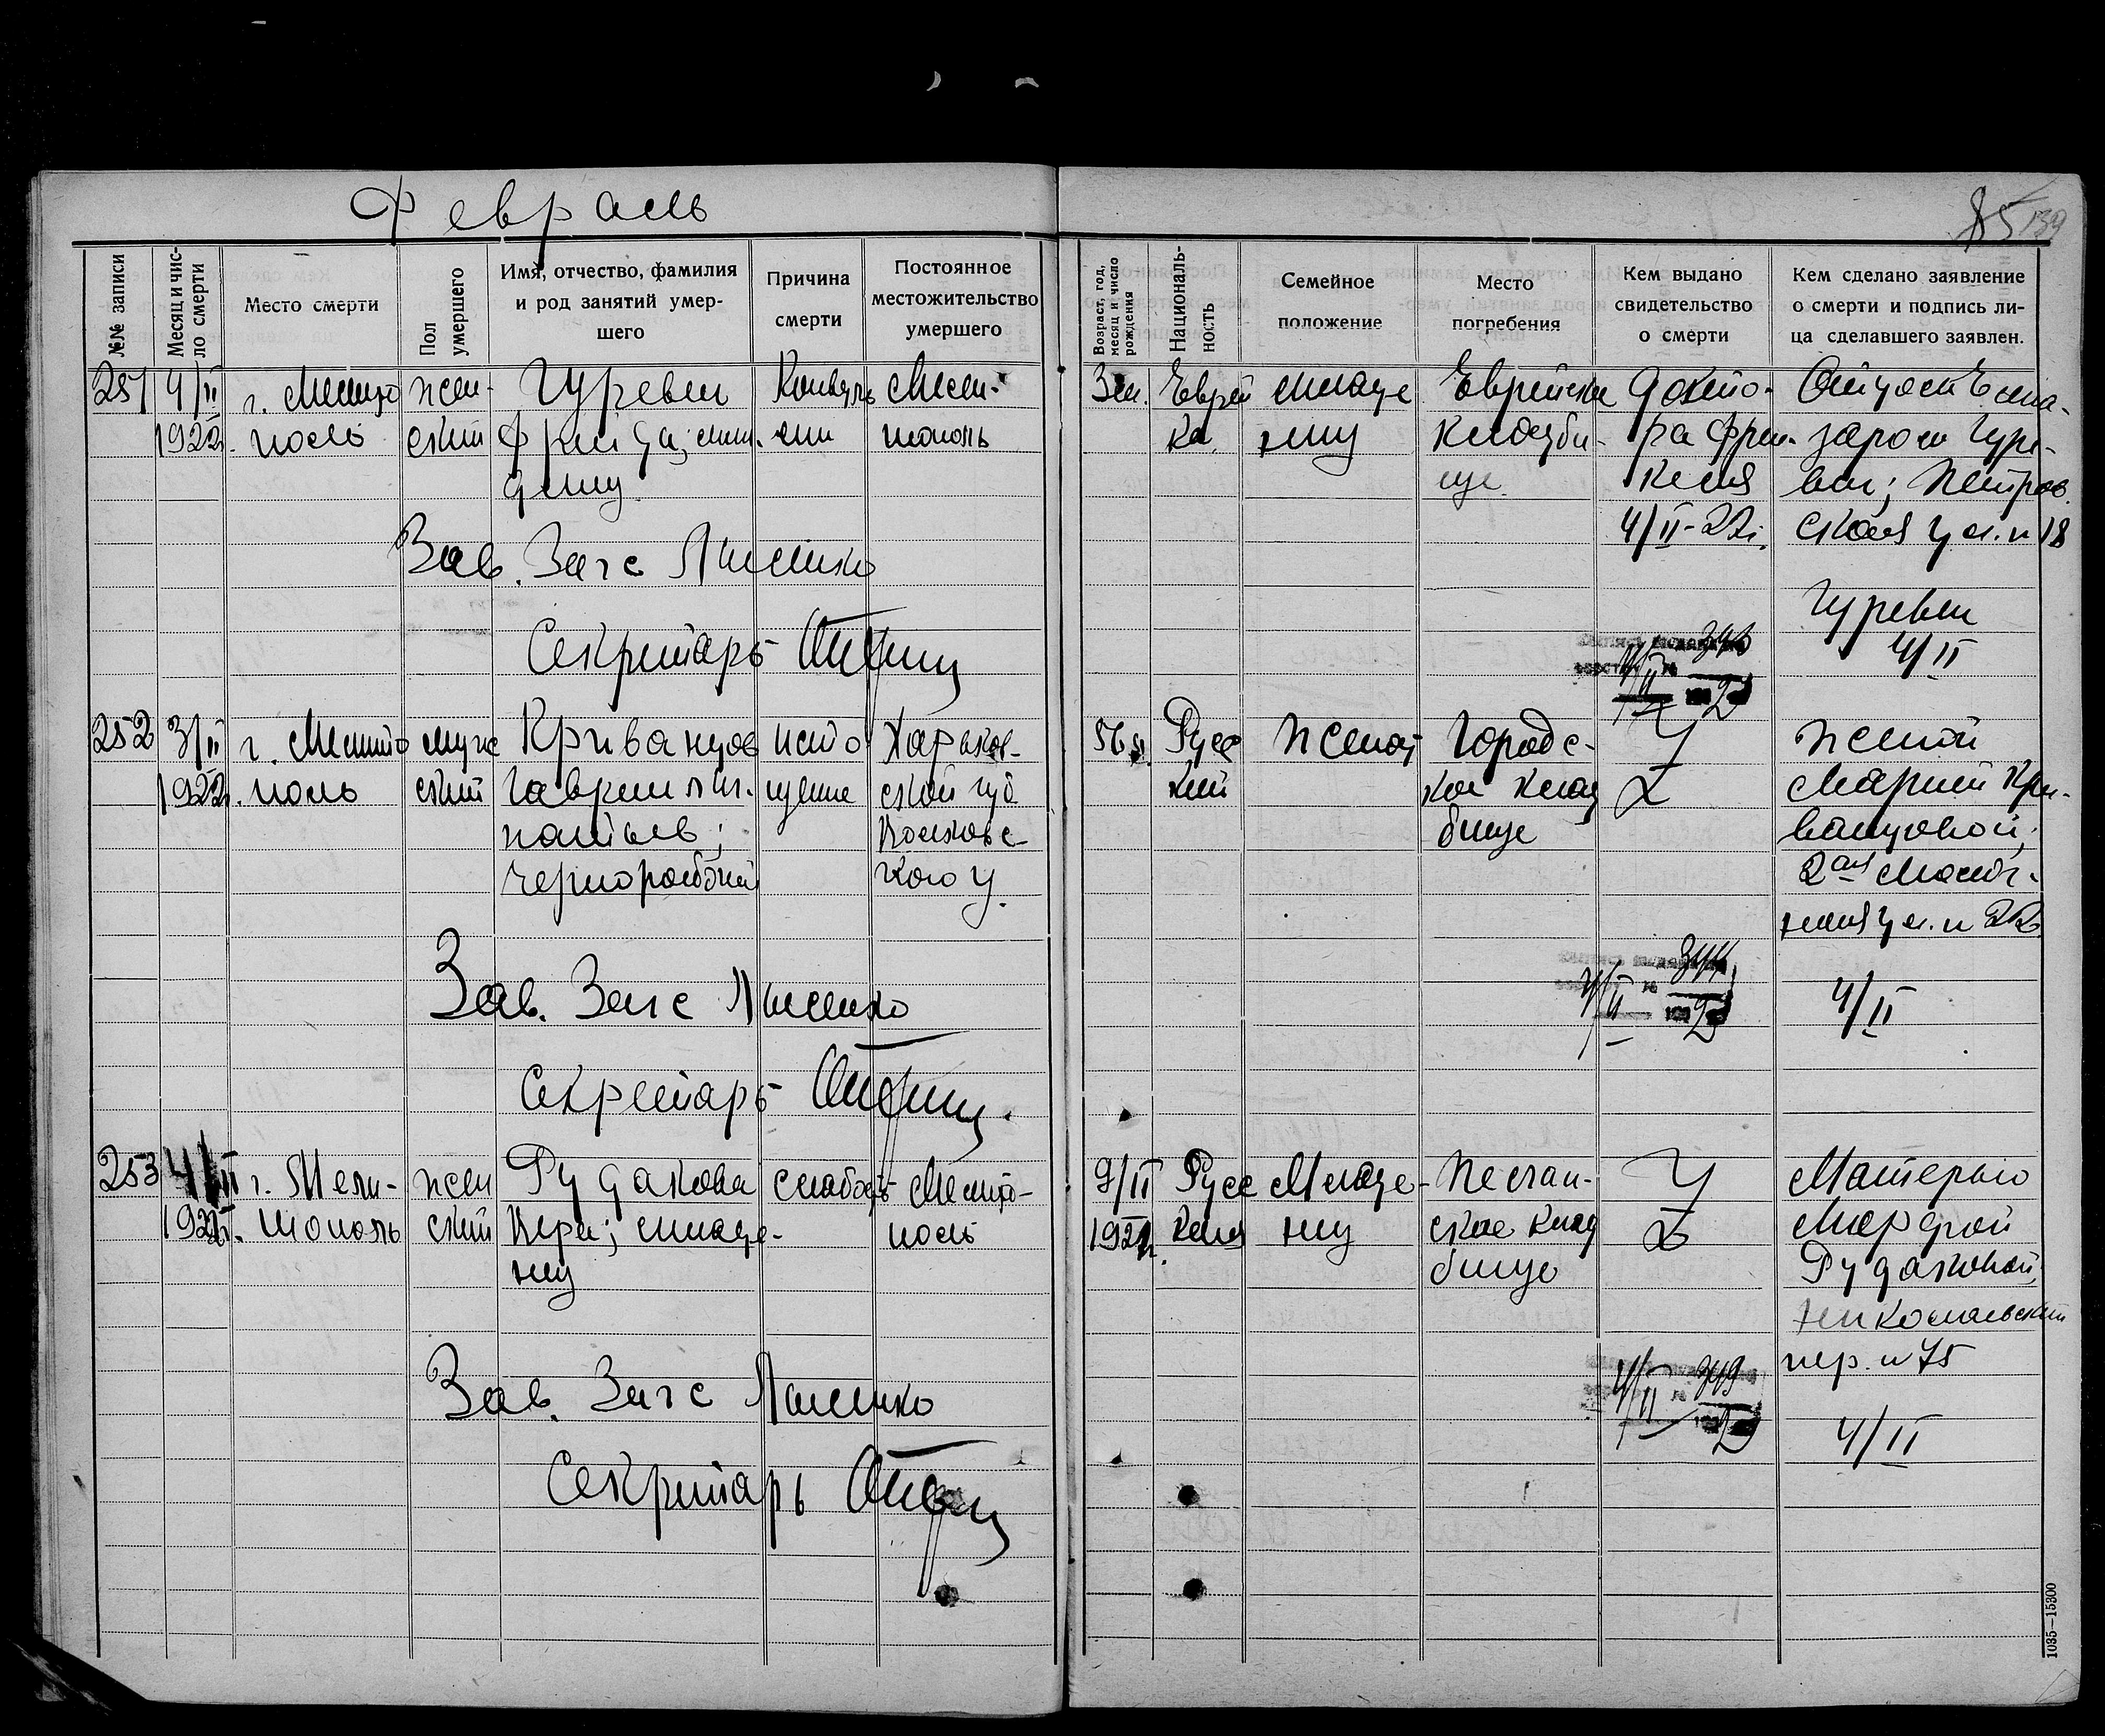 Февраль
85 139
№№ записи
Месяц и чис-
ло смерти
Место смерти
Пол
умершего
Имя, отчество, фамилия
и род занятий умер-
шего
Причина
смерти
Постоянное
местожительство
умершего
Возраст, год,
месяц и число
рождения
Националь-
ность
Семейное
положение
Место
погребения
Кем выдано
свидетельство
о смерти
Кем сделано заявление
о смерти и подпись ли-
ца сделавшего заявлен.
251
4/II
1922г.
г. Мелито
поль
жен-
ский
Гуревич
Фрида; мла-
денец
Мели-
тополь
Еврей
ка
младе
нец
Еврейское
кладби-
ще
докто-
ра Френ-
келя
4/II-22г.
Отцом Елеа-
заром Гуре-
вич; Петров
ская ул. № 18
Гуревич
4/II
Зав. Загс
Секретарь
343
4/II
252
3/II
1922г.
г. Мелито
поль
муж
ский
Криванцов
Гавриил Иг-
натьев;
чернорабочий
исто
щение
Харьков-
ской губ
Волчовс-
кого у.
56 л.
Русс
кий
женат
Городс-
кое клад
бище
Женой
Марией Кри-
ванцовой;
2ая
ул. № 22
4/II
Зав. Загс
Секретарь
344
4/II
253
4/II
1922г.
г. Мели-
тополь
жен
ский
Рудакова
Вера; младе-
нец
слабость
Мелито-
поль
9/II
1921г.
Русс
кая
Младе-
нец
Песчан-
ское клад
бище
Матерью
Марфой
Рудаковой;
Николаевский
пер. № 75
4/II
Зав. Загс
Секретарь
4/II
1035—15300